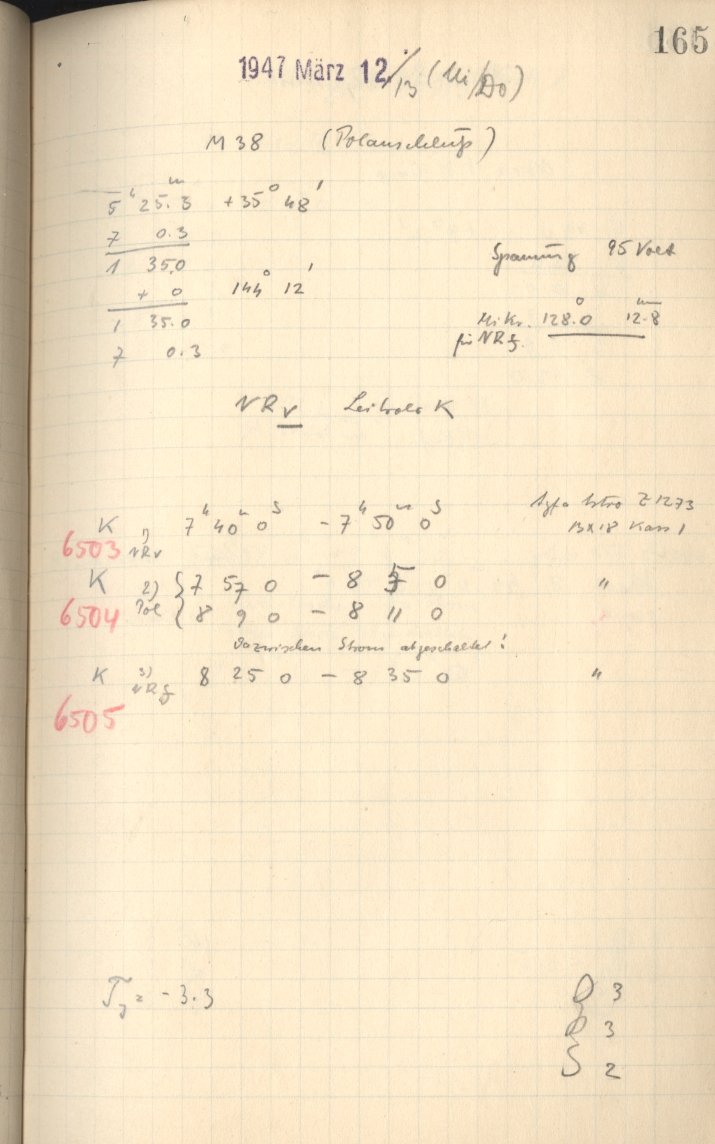 165
1947 März 12./13 (Mi/Do)
M 38 (Polanschluß)
5h 25.m3 +35° 48'
7 0.3
1 35.0
+ 0 144° 12'
1 35.0
7 0.3
Spannung 95 Volt
Mikr. 128.°0 12.m8
für NRf.
NRv Leitrohr K
K 1) 7h 40m 0s - 7h 50m 0s Agfa Astro Z1273
6503 NRv 13x18 Kass 1
K 2) { 7 57 0 - 8 5 0 "
6504 Pol { 8 9 0 - 8 11 0
Dazwischen Strom abgeschaltet!
K 3) 8 25 0 - 8 35 0 "
NRf
6505
= -3.3
3
3
S 2